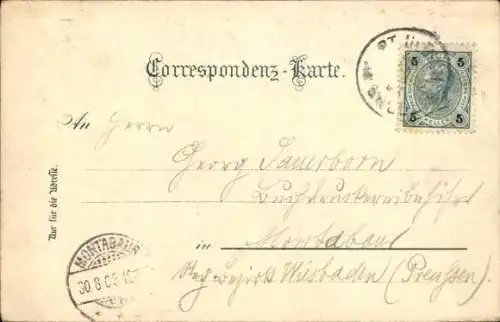 Correspondenz-Karte.
5 5
5 5
An Herrn
Georg Sauerborn
Buchdruckereibesitzer
in Montabaur
Reg. bezirk Wiesbaden (Preussen)
Nur für die Adresse.
MONTABAUR
30.8.0